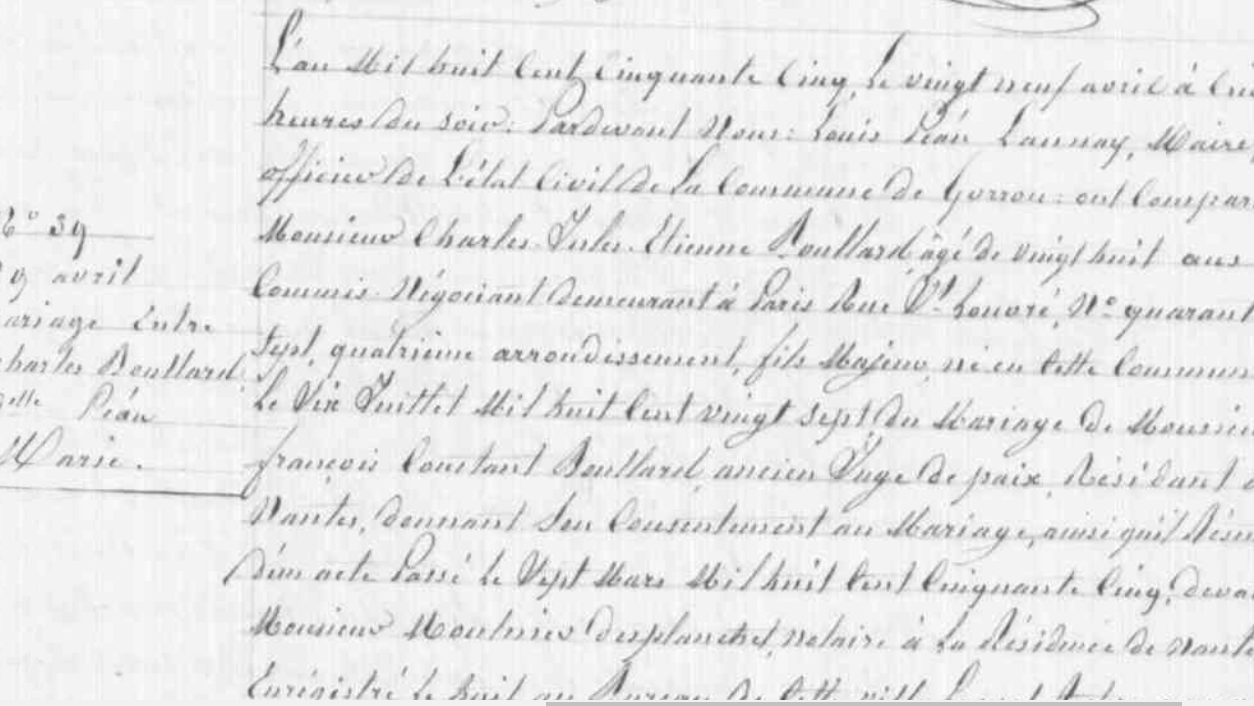 N° 39
29 avril
ariage Entre
harles Boullard
elle Péan
Marie.
L'an Mil huit Cent Cinquante Cinq, Le vingt neuf avril à Cin
heures du soir. Pardevant Nous: Louis Péan Launay, Maire,
officier de L'état Civil de La Commune de Gorron: ont Compar
Monsieur Charles Jules Etienne Boullard, âgé de vingt huit ans
Commis Négociant demeurant à Paris Rue St. honoré, N° quarant
Sept, quatrième arrondissement, fils Majeur, né en Cette Commun
Le Dix Juillet Mil huit Cent vingt sept du Mariage de Monsieu
françois Constant Boullard, ancien Juge de paix, Résidant
Nantes, donnant Son Consentement au Mariage, ainsi qu'il Résu
d'un acte Passé Le Sept Mars Mil huit Cent Cinquante Cinq, deva
Monsieur notaire à La Résidence de Nante
Enrégistré Le huit au Bureau de Cette ville